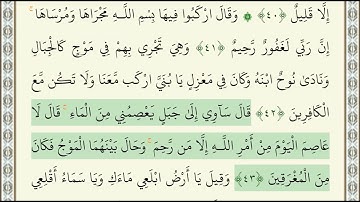 إِلَّا قَلِيلٌ ﴿٤٠﴾ ۞ وَقَالَ ارْكَبُوا فِيهَا بِسْمِ اللَّـهِ مَجْرَاهَا وَمُرْسَاهَا ۚ
إِنَّ رَبِّي لَغَفُورٌ رَّحِيمٌ ﴿٤١﴾ وَهِيَ تَجْرِي بِهِمْ فِي مَوْجٍ كَالْجِبَالِ
وَنَادَىٰ نُوحٌ ابْنَهُ وَكَانَ فِي مَعْزِلٍ يَا بُنَيَّ ارْكَب مَّعَنَا وَلَا تَكُن مَّعَ
الْكَافِرِينَ ﴿٤٢﴾ قَالَ سَآوِي إِلَىٰ جَبَلٍ يَعْصِمُنِي مِنَ الْمَاءِ ۚ قَالَ لَا
عَاصِمَ الْيَوْمَ مِنْ أَمْرِ اللَّـهِ إِلَّا مَن رَّحِمَ ۚ وَحَالَ بَيْنَهُمَا الْمَوْجُ فَكَانَ
مِنَ الْمُغْرَقِينَ ﴿٤٣﴾ وَقِيلَ يَا أَرْضُ ابْلَعِي مَاءَكِ وَيَا سَمَاءُ أَقْلِعِي